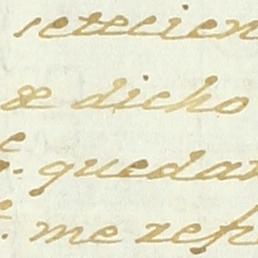 setecien
de dicho
quedar
me refi